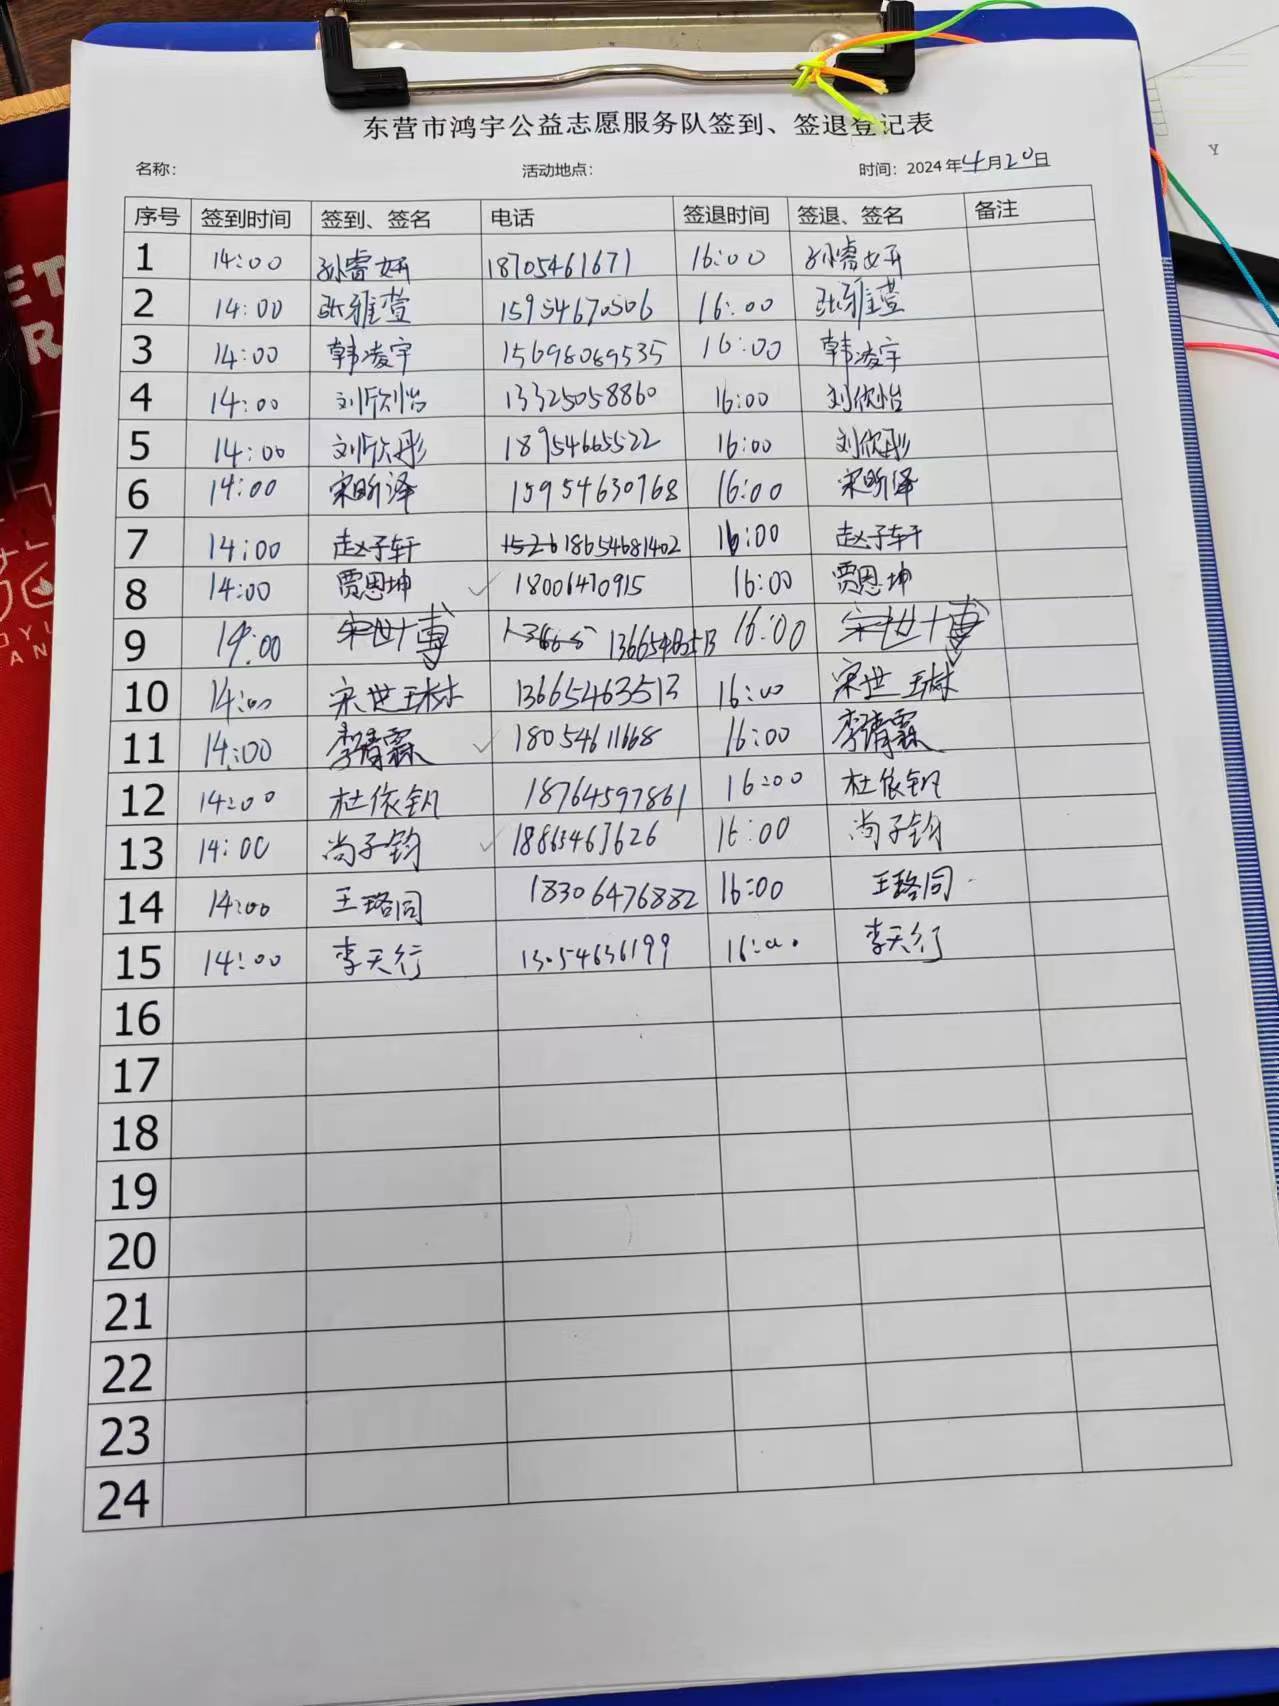 东营市鸿宇公益志愿服务队签到、签退登记表
名称： 活动地点： 时间：2024年4月20日
序号 签到时间 签到、签名 电话 签退时间 签退、签名 备注
1 14:00 孙睿妍 18705461671 16:00 孙睿妍
2 14:00 张雅萱 15954670506 16:00 张雅萱
3 14:00 韩凌宇 15698089535 16:00 韩凌宇
4 14:00 刘欣怡 13325058860 16:00 刘欣怡
5 14:00 刘欣彤 18954665522 16:00 刘欣彤
6 14:00 宋昕泽 15954630768 16:00 宋昕泽
7 14:00 赵子轩 18654681402 16:00 赵子轩
8 14:00 贾恩坤 18006470915 16:00 贾恩坤
9 14:00 宋世博 16:00 宋世博
10 14:00 宋世琳 13665463513 16:00 宋世琳
11 14:00 李清霖 18054611668 16:00 李清霖
12 14:00 杜依钒 18764597861 16:00 杜依钒
13 14:00 尚子钧 16:00 尚子钧
14 14:00 王珞同 18306476882 16:00 王珞同
15 14:00 李天行 16:00 李天行
16
17
18
19
20
21
22
23
24